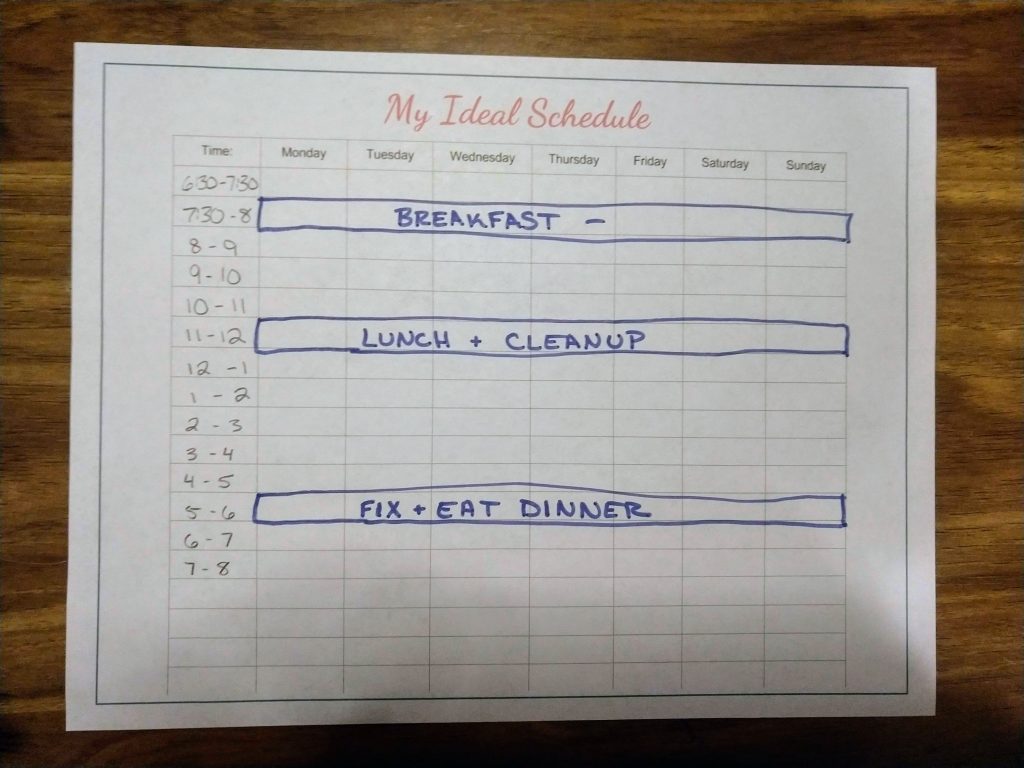 My Ideal Schedule
Time: Monday Tuesday Wednesday Thursday Friday Saturday Sunday
6:30-7:30
7:30-8 BREAKFAST -
8-9
9-10
10-11
11-12 LUNCH + CLEANUP
12-1
1-2
2-3
3-4
4-5
5-6 FIX + EAT DINNER
6-7
7-8